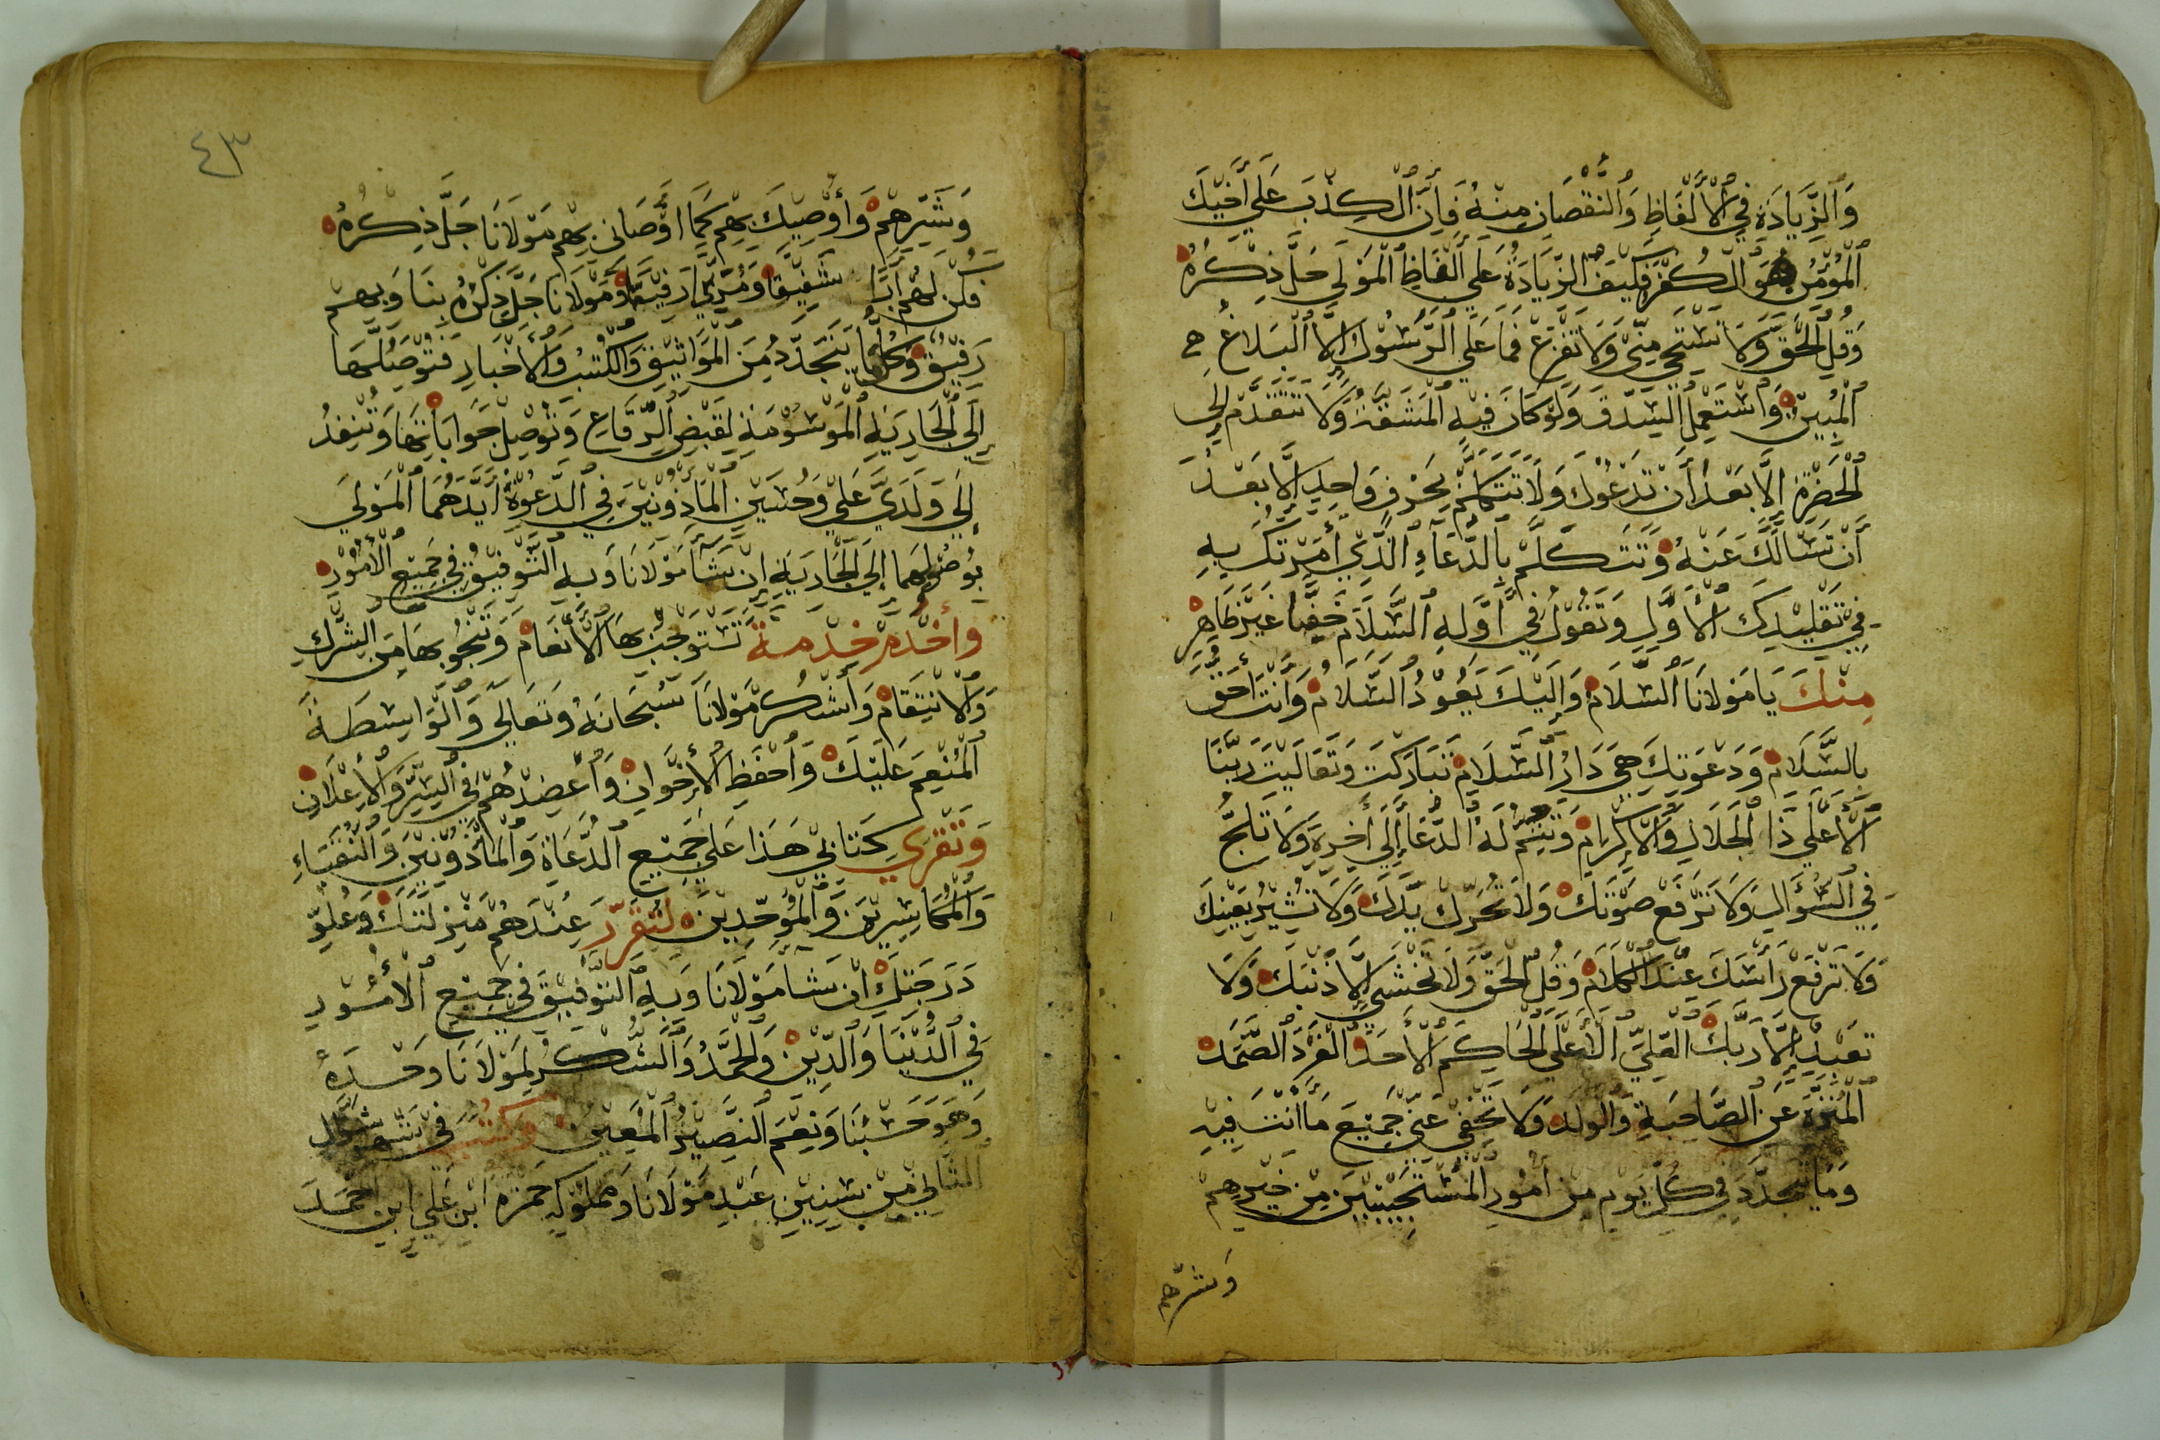 وَالزِّيَادَةِ فِي الْأَلْفَاظِ وَالنُّقْصَانِ مِنْهُ فَإِنَّ الْكِذْبَ عَلَي أَخِيْكَ
الْمُؤْمِنِ هُوَ الْكُفْرُ فَكَيْفَ الزِّيَادَةُ عَلَي أَلْفَاظِ الْمَوْلَي جَلَّ ذِكْرُهُ
وَقُلِ الْحَقَّ وَلَا تَسْتَحِي مِنِّي وَلَا تَفْزَعْ فَمَا عَلَي الرَّسُوْلِ إِلَّا الْبَلَاغُ
الْمُبِيْنُ وَاسْتَعْمِلِ السِّدْقَ وَلَوْ كَانَ فِيْهِ الْمَشَقَّةُ وَلَا تَتَقَدَّمْ إِلَي
الْحَضْرَةِ إِلَّا بَعْدَ أَنْ تَدْعُوْكَ وَلَا تَتَكَلَّمْ بِحَرْفٍ وَاحِدٍ إِلَّا بَعْدَ
أَنْ تَسْأَلَكَ عَنْهُ وَتَتَكَلَّمْ بِالدُّعَاءِ الَّذِي أَمَرْتُكَ بِهِ
فِي تَقْلِيْدِكَ الْأَوَّلِ وَتَقُوْلُ فِي أَوَّلِهِ السَّلَامَ خَفِيًّا غَيْرَ ظَاهِرٍ
مِنْكَ يَا مَوْلَانَا السَّلَامُ وَإِلَيْكَ يَعُوْدُ السَّلَامُ وَأَنْتَ أَحَقُّ
بِالسَّلَامِ وَدَعْوَتِكَ هِيَ دَارُ السَّلَامِ تَبَارَكْتَ وَتَعَالَيْتَ رَبَّنَا
الْأَعْلَي ذَا الْجَلَالِ وَالْإِكْرَامِ وَتُتِمُّ لَهُ الدُّعَاءَ إِلَي أَخِرِهِ وَلَا تَلِجُّ
فِي السُّؤَالِ وَلَا تَرْفَعْ صَوْتَكَ وَلَا تُحَرِّكْ يَدَكَ وَلَا تُشِيْرُ بِعَيْنِكَ
وَلَا تَرْفَعْ رَأْسَكَ عِنْدَ الْكَلَامِ وَقُلِ الْحَقَّ وَلَا تَخْشَي إِلَّا ذَنْبَكَ وَلَا
تَعْبُدْ إِلَّا رَبَّكَ الْعَلِيَّ الْأَعْلَي الْحَاكِمَ الْأَحَدَ الْفَرْدَ الصَّمَدَ
الْمُنَزَّهَ عَنِ الصَّاحِبَةِ وَالْوَلَدِ وَلَا تُخْفِي عَنِّي جَمِيْعَ مَا أَنْتَ فِيْهِ
وَمَا يَتَجَدَّدُ فِي كُلِّ يَوْمٍ مِنْ أُمُوْرِ الْمُسْتَجِيْبِيْنَ مِنْ خَيْرِهِمْ
وَشَرِّهِمْ
٤٣
وَشَرِّهِمْ وَأُوْصِيْكَ بِهِمْ كَمَا أَوْصَانِي بِهِمْ مَوْلَانَا جَلَّ ذِكْرُهُ
فَكُنْ لَهُمْ أَبًا شَفِيْقًا وَمُرَبِّيًا رَفِيْقًا وَمَوْلَانَا جَلَّ ذِكْرُهُ بِنَا وَبِهِمْ
رَفِيْقٌ وَكُلَّمَا يَتَجَدَّدُ مِنَ الْمَوَاثِيْقِ وَالْكُتُبِ وَالْأَخْبَارِ فَتُوْصِلُهَا
إِلَي الْجَارِيَةِ الْمَوْسُوْمَةِ لِقَبْضِ الرِّقَاعِ وَتُوْصِلُ جَوَابَاتِهَا وَتُنْفِذُ
إِلَي وَلَدَيَّ عَلِي وَحُسَيْنِ الْمَأْذُوْنَيْنِ فِي الدَّعْوَةِ أَيَّدَهُمَا الْمَوْلَي
بِوُصُوْلِهِمَا إِلَي الْجَارِيَةِ إِنْ شَآءَ مَوْلَانَا وَبِهِ التَّوْفِيْقُ فِي جَمِيْعِ الْأُمُوْرِ
وَأخْدُمْ خِدْمَةً تَسْتَوْجِبُ بِهَا الْأَنْعَامَ وَتَنْجُو بِهَا مِنَ الشِّرْكِ
وَالْانْتِقَامِ وَأَشْكُرْ مَوْلَانَا سُبْحَانَهُ وَتَعَالَي وَالْوَاسِطَةَ
الْمُنْعِمَ عَلَيْكَ وَاحْفَظِ الْأِخْوَانَ وَأَعْضِدْهُمْ فِي السِّرِّ وَالْأِعْلَانِ
وَتَقْرَي كِتَابِي هَذَا عَلَي جَمِيْعِ الدُّعَاةِ وَالْمَأْذُوْنِيْنَ وَالنُّقَبَاءِ
وَالْمُكَاسِرِيْنَ وَالْمُوَحِّدِيْنَ لِتُقَرِّرَ عِنْدَهُمْ مَنْزِلَتَكَ وَعُلُوَّ
دَرَجَتِكَ إِنْ شَآءَ مَوْلَانَا وَبِهِ التَّوْفِيْقُ فِي جَمِيْعِ الْأُمُوْرِ
فِي الدُّنْيَا وَالدِّيْنِ وَالْحَمْدُ وَالشُّكْرُ لِمَوْلَانَا وَحْدَهُ
وَهُوَ حَسْبُنَا وَنِعْمَ النَّصِيْرُ الْمُعِيْنُ وَكُتِبَ فِي شَهْرِ شَوَّال
الثَّانِي مِنْ سِنِيْنِ عَبْدِ مَوْلَانَا وَمَمْلُوْكِهِ حَمْزَه ابْنِ عَلِي ابْنِ أَحْمَدَ